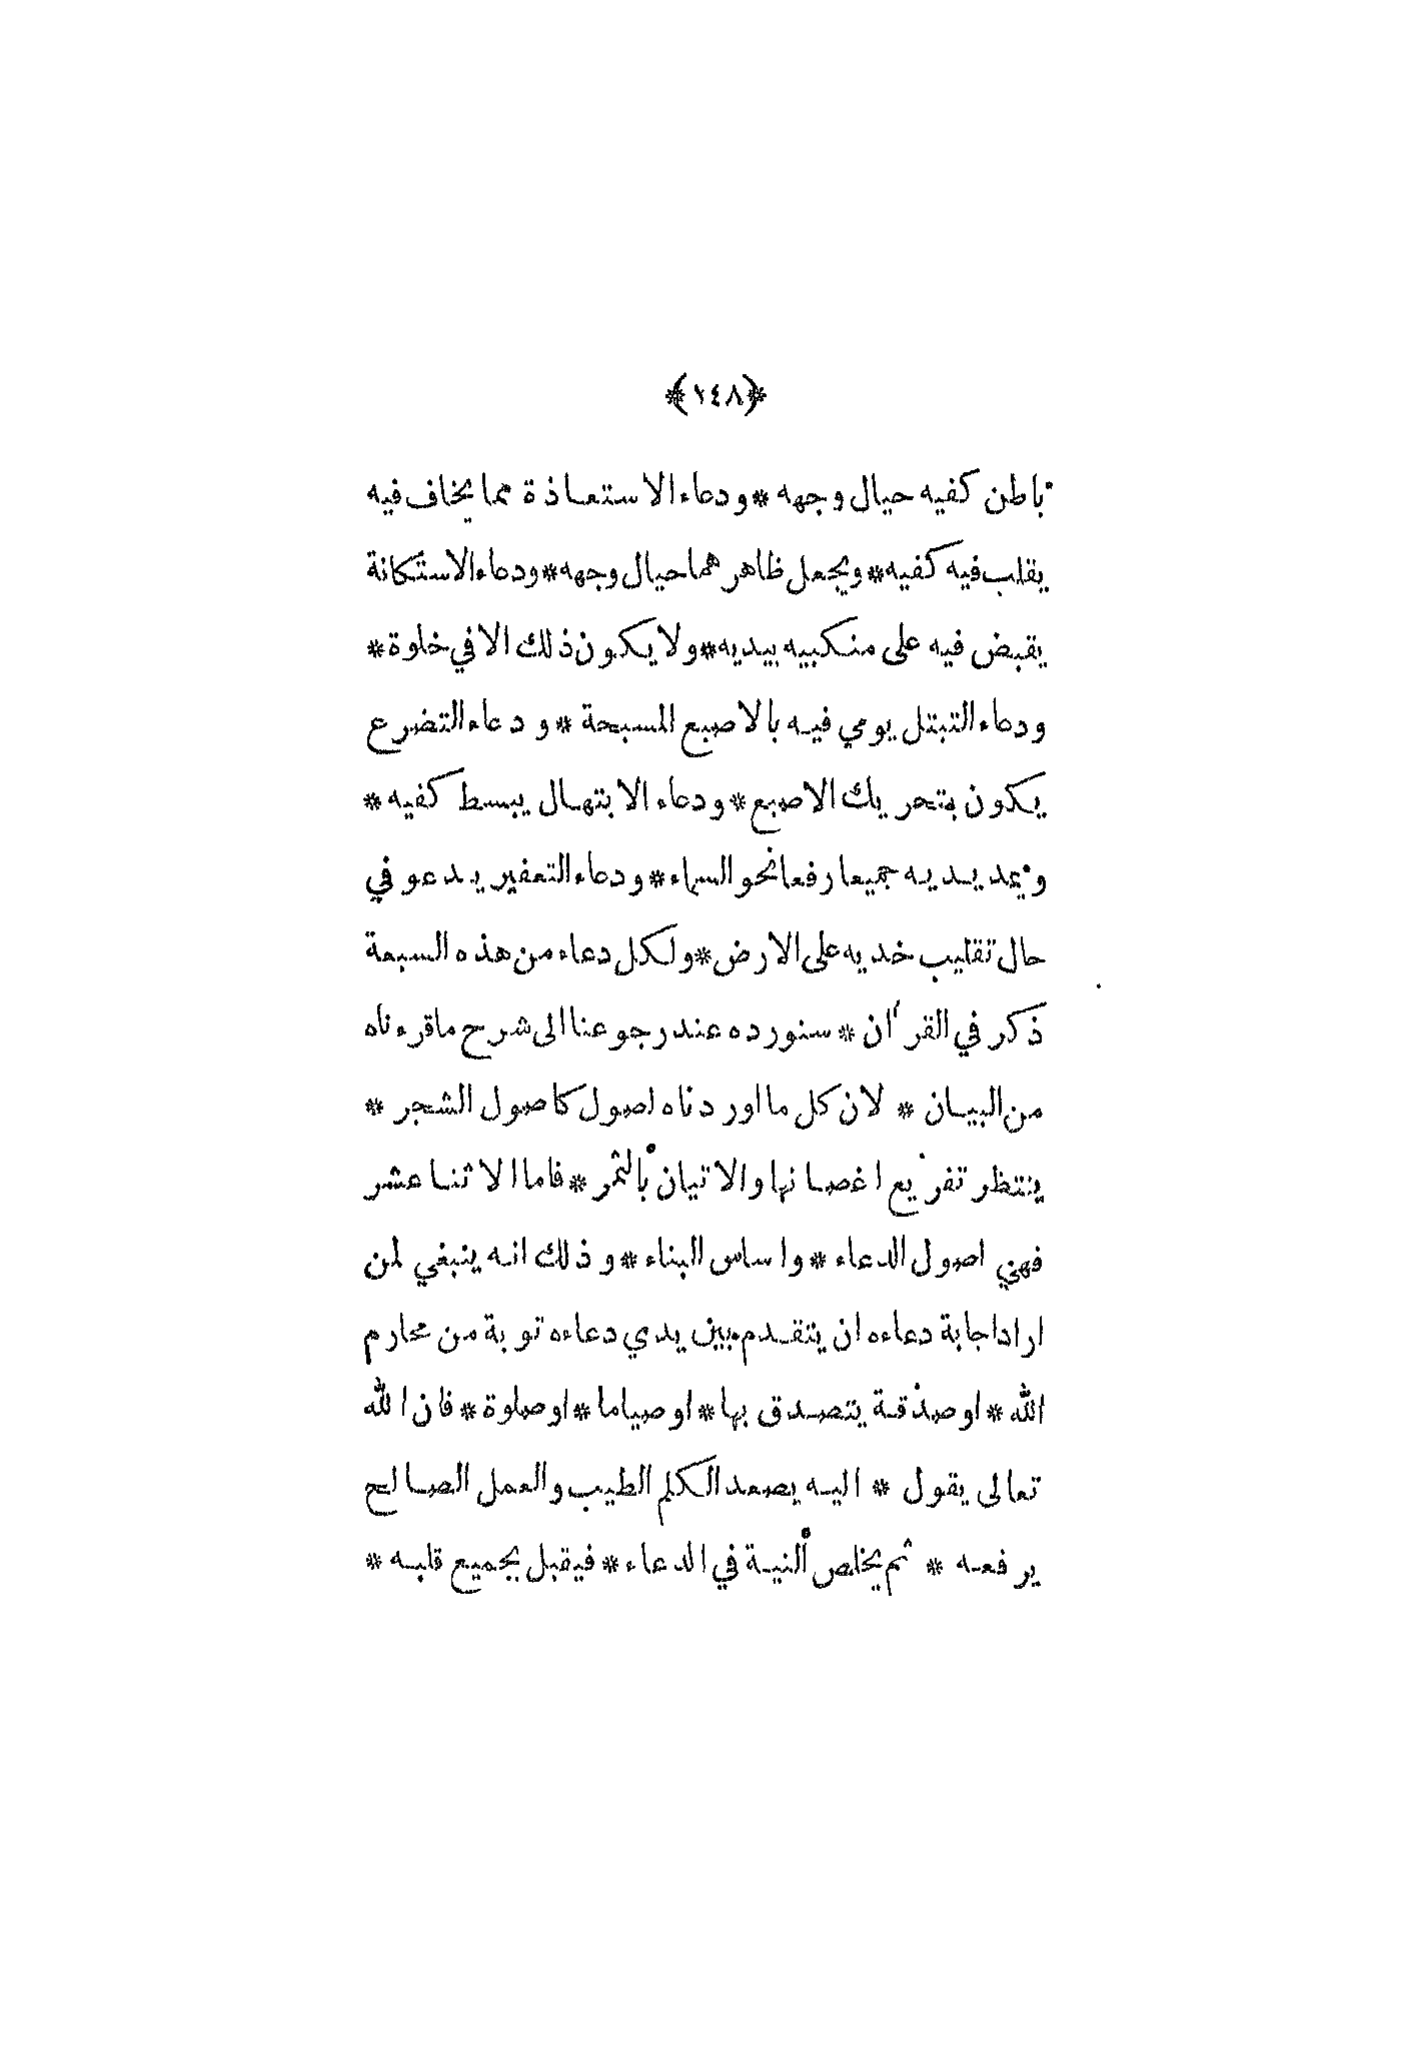 *(٢٤٨)*
باطن كفيه حيال وجهه * ودعاء الاستعاذة مما يخاف فيه
يقلب فيه كفيه * ويجعل ظاهرهما حيال وجهه * ودعاء الاستكانة
يقبض فيه على منكبيه بيديه * ولا يكون ذلك الا في خلوة *
ودعاء التبتل يومي فيه بالاصبع المسبحة * ودعاء التضرع
يكون بتحريك الاصبع * ودعاء الابتهال يبسط كفيه *
ويمد يديه جميعا رفعا نحو السماء * ودعاء التعفير يدعو في
حال تقليب خديه على الارض * ولكل دعاء من هذه السبعة
ذكر في القرآن * سنورده عند رجوعنا الى شرح ماقرءناه
من البيان * لان كل ما اوردناه اصول كاصول الشجر *
ينتظر تفريع اغصانها والاتيان بالثمر * فاما الاثنا عشر
فهي اصول الدعاء * واساس البناء * وذلك انه ينبغي لمن
اراد اجابة دعاءه ان يتقدم بين يدي دعاءه توبة من محارم
الله * او صدقة يتصدق بها * او صياما * او صلوة * فان الله
تعالى يقول * اليه يصعد الكلم الطيب والعمل الصالح
يرفعه * ثم يخلص النية في الدعاء * فيقبل بجميع قلبه *